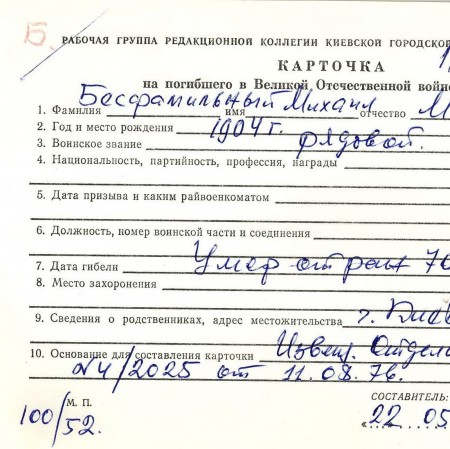 Б.
РАБОЧАЯ ГРУППА РЕДАКЦИОННОЙ КОЛЛЕГИИ КИЕВСКОЙ ГОРОДСКОЙ
КАРТОЧКА
на погибшего в Великой Отечественной войне
1. Фамилия Бесфамильный имя Михаил отчество М
2. Год и место рождения 1904 г.
3. Воинское звание рядовой.
4. Национальность, партийность, профессия, награды
5. Дата призыва и каким райвоенкоматом
6. Должность, номер воинской части и соединения
7. Дата гибели Умер от ран
8. Место захоронения
9. Сведения о родственниках, адрес местожительства г. Киев
10. Основание для составления карточки Извещ. Отдела
№4/2025 от 11.08.76.
М. П.
СОСТАВИТЕЛЬ:
100/52.
«22 05